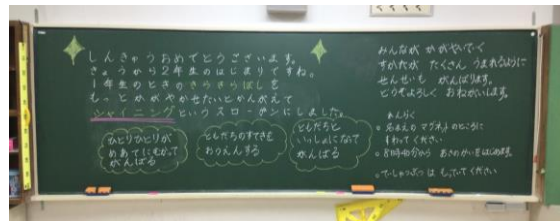 しんきゅうおめでとうございます。
きょうから2年生のはじまりですね。
1年生のときのきらきらぼしを
もっとかがやかせたいとかんがえて
シャイニングというスローガンにしました。
ひとりひとりが
めあてにむかって
がんばる
ともだちのすてきを
おうえんする
ともだちと
いっしょになって
がんばる
みんなが かがやいていく
すがたが たくさん うまれるように
せんせいも がんばります。
どうぞよろしく おねがいします。
れんらく
なまえの マグネットのところに
すわって ください
8じ40分から あさのかいをはじめます。
ていしゅつぶつは もっていてください